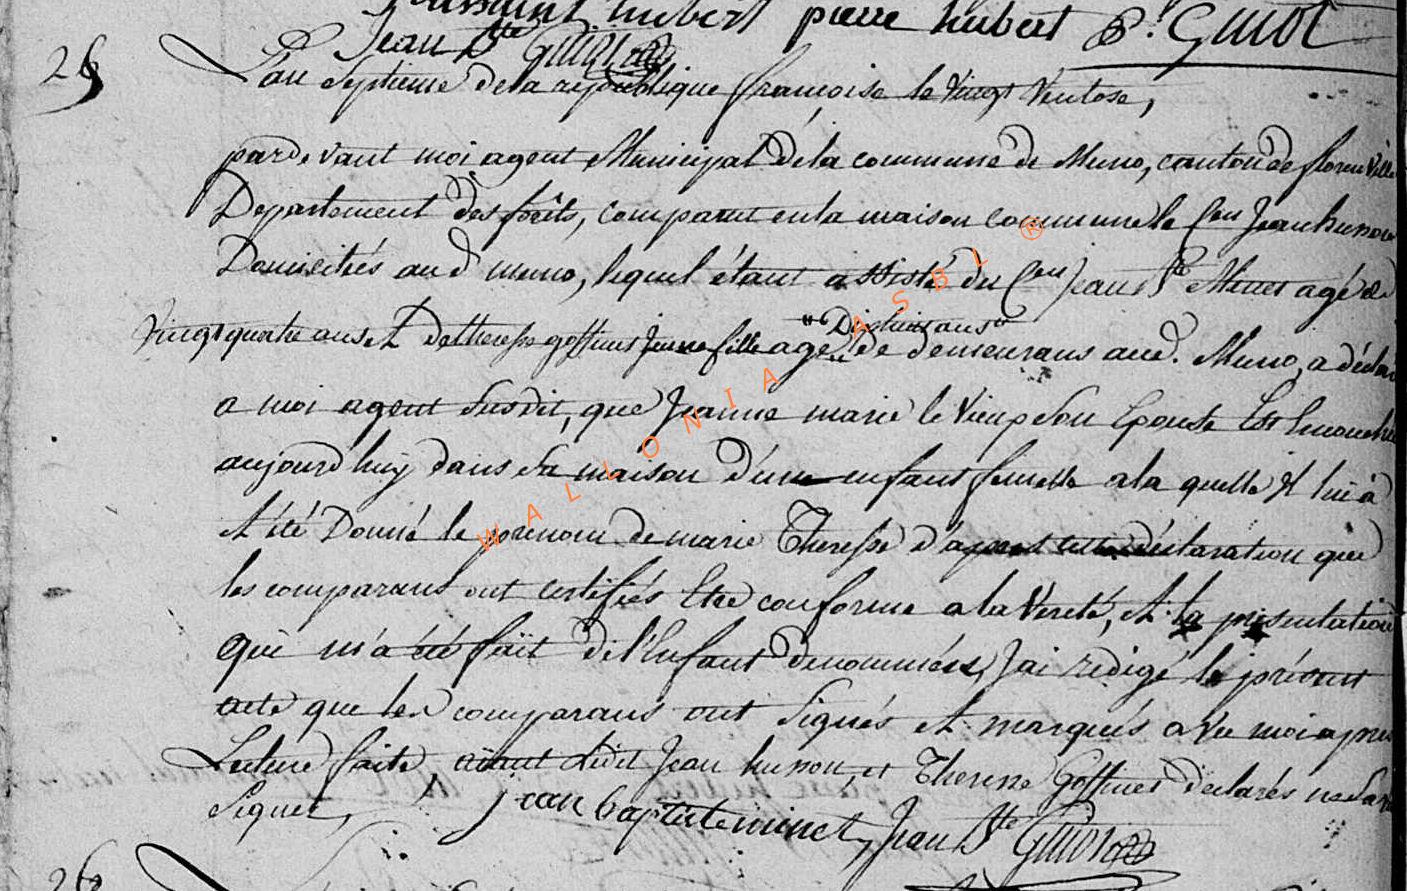 toussaint hubert pierre hubert P. Guiot
Jean Bte Guiot
25
L'an Septieme de la republique françoise le Vingt Ventose,
pardevant moi agent Municipal de la commune de Muno, canton de florenville
Departement des forêts, comparut en la maison commune le Cen Jean husson
Domiciliés aud muno, lequel étant assisté du Cen Jean Bte Minet agé de
"Dixhuit ans"
Vingt quatre ans et De therese goffinet jeune fille agé de demeurans aud. Muno, a déclaré
a moi agent Susdit, que Jeanne marie le Vieux son Epouse Est accouchée
aujourd'huy dans sa maison d'une enfant femelle a la quelle Il lui à
Eté Donné le prenom de marie Therese d'apres cette déclaration que
les comparans ont certifiés Etre conforme a la Vereté, et la presentation
que m'a été fait de l'Enfant denommée, J'ai redigé le présent
acte que les comparans ont signés et marqués avec moi apres
Lecture faite, Jean husson, et Therese Goffinet declarés ne savoir
Signer, jean baptiste minet Jean Bte Guiot
26
WALLONIA ASBL ®